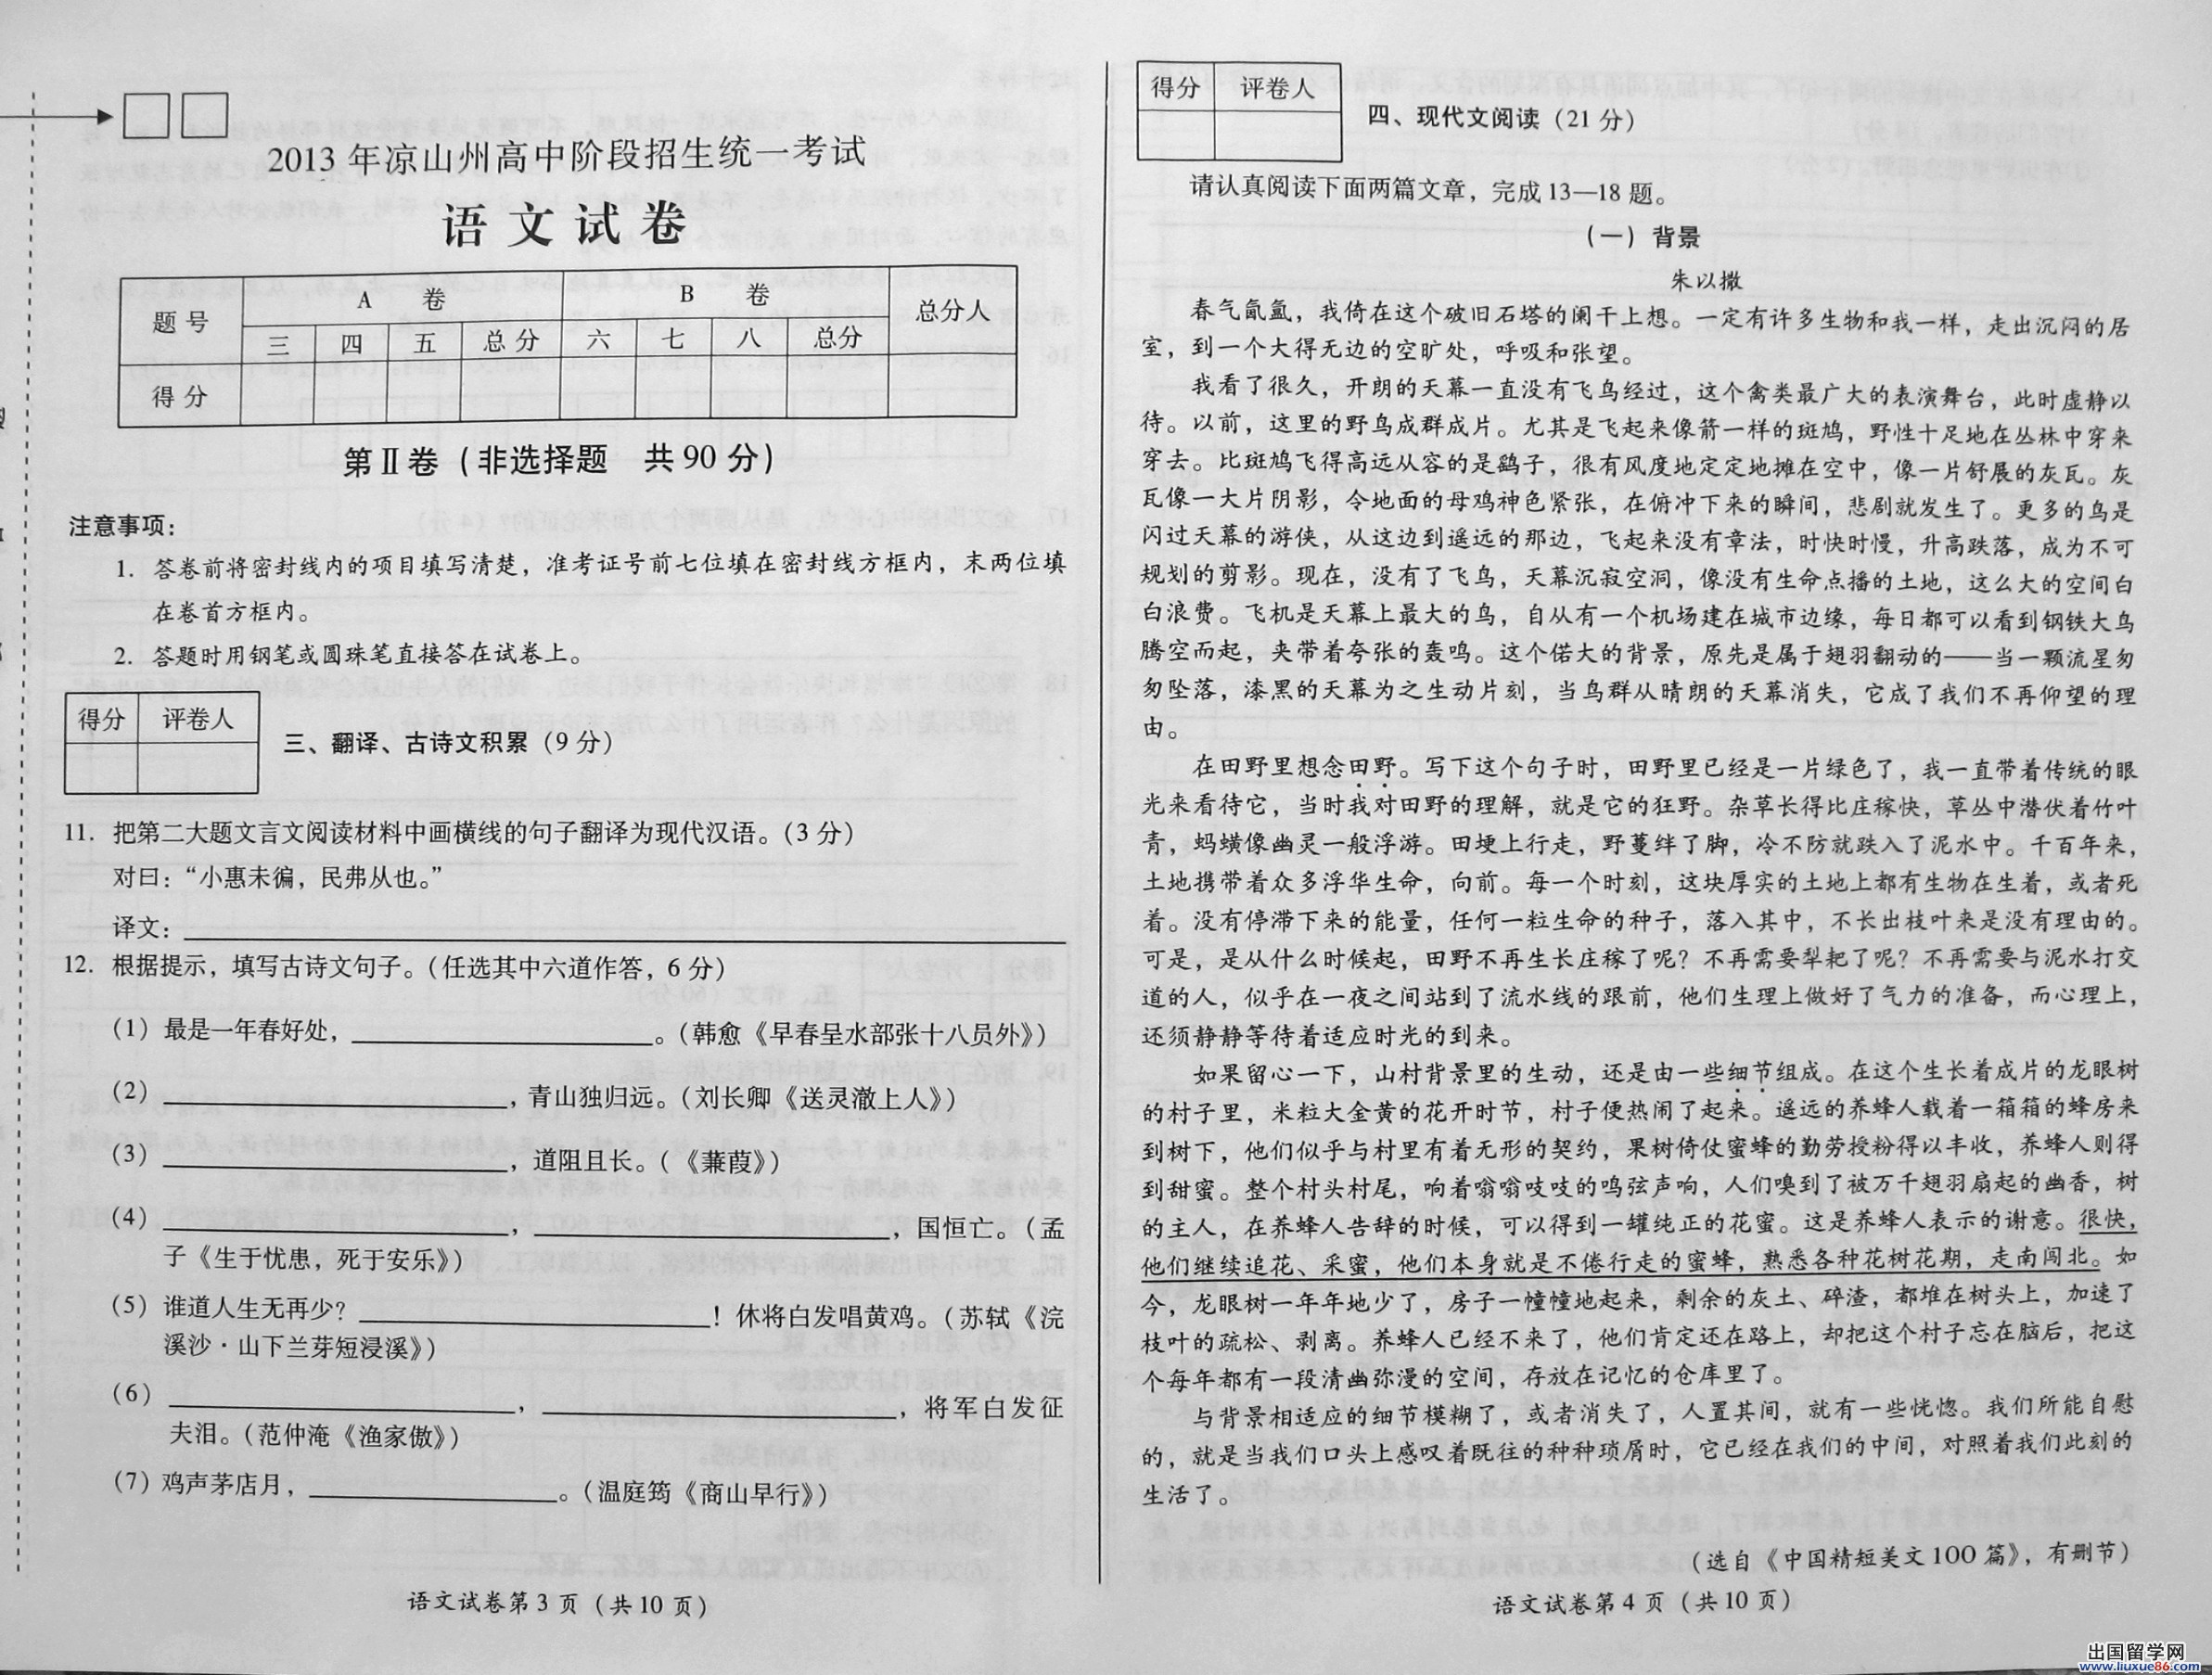 2013年凉山州高中阶段招生统一考试
语文试卷
题号 A 卷 B 卷 总分人
三 四 五 总分 六 七 八 总分
得分
第Ⅱ卷（非选择题 共90分）
注意事项：
1. 答卷前将密封线内的项目填写清楚，准考证号前七位填在密封线方框内，末两位填
在卷首方框内。
2. 答题时用钢笔或圆珠笔直接答在试卷上。
得分 评卷人
三、翻译、古诗文积累（9分）
11. 把第二大题文言文阅读材料中画横线的句子翻译为现代汉语。（3分）
对曰：“小惠未徧，民弗从也。”
译文：
12. 根据提示，填写古诗文句子。（任选其中六道作答，6分）
（1）最是一年春好处，。（韩愈《早春呈水部张十八员外》）
（2），青山独归远。（刘长卿《送灵澈上人》）
（3），道阻且长。（《蒹葭》）
（4），，国恒亡。（孟
子《生于忧患，死于安乐》）
（5）谁道人生无再少？！休将白发唱黄鸡。（苏轼《浣
溪沙·山下兰芽短浸溪》）
（6），，将军白发征
夫泪。（范仲淹《渔家傲》）
（7）鸡声茅店月，。（温庭筠《商山早行》）
语文试卷第3页（共10页）
得分 评卷人
四、现代文阅读（21分）
请认真阅读下面两篇文章，完成13—18题。
（一）背景
朱以撒
春气氤氲，我倚在这个破旧石塔的阑干上想。一定有许多生物和我一样，走出沉闷的居
室，到一个大得无边的空旷处，呼吸和张望。
我看了很久，开朗的天幕一直没有飞鸟经过，这个禽类最广大的表演舞台，此时虚静以
待。以前，这里的野鸟成群成片。尤其是飞起来像箭一样的斑鸠，野性十足地在丛林中穿来
穿去。比斑鸠飞得高远从容的是鹞子，很有风度地定定地摊在空中，像一片舒展的灰瓦。灰
瓦像一大片阴影，令地面的母鸡神色紧张，在俯冲下来的瞬间，悲剧就发生了。更多的鸟是
闪过天幕的游侠，从这边到遥远的那边，飞起来没有章法，时快时慢，升高跌落，成为不可
规划的剪影。现在，没有了飞鸟，天幕沉寂空洞，像没有生命点播的土地，这么大的空间白
白浪费。飞机是天幕上最大的鸟，自从有一个机场建在城市边缘，每日都可以看到钢铁大鸟
腾空而起，夹带着夸张的轰鸣。这个偌大的背景，原先是属于翅羽翻动的——当一颗流星匆
匆坠落，漆黑的天幕为之生动片刻，当鸟群从晴朗的天幕消失，它成了我们不再仰望的理
由。
在田野里想念田野。写下这个句子时，田野里已经是一片绿色了，我一直带着传统的眼
光来看待它，当时我对田野的理解，就是它的狂野。杂草长得比庄稼快，草丛中潜伏着竹叶
青，蚂蟥像幽灵一般浮游。田埂上行走，野蔓绊了脚，冷不防就跌入了泥水中。千百年来，
土地携带着众多浮华生命，向前。每一个时刻，这块厚实的土地上都有生物在生着，或者死
着。没有停滞下来的能量，任何一粒生命的种子，落入其中，不长出枝叶来是没有理由的。
可是，是从什么时候起，田野不再生长庄稼了呢？不再需要犁耙了呢？不再需要与泥水打交
道的人，似乎在一夜之间站到了流水线的跟前，他们生理上做好了气力的准备，而心理上，
还须静静等待着适应时光的到来。
如果留心一下，山村背景里的生动，还是由一些细节组成。在这个生长着成片的龙眼树
的村子里，米粒大金黄的花开时节，村子便热闹了起来。遥远的养蜂人载着一箱箱的蜂房来
到树下，他们似乎与村里有着无形的契约，果树倚仗蜜蜂的勤劳授粉得以丰收，养蜂人则得
到甜蜜。整个村头村尾，响着嗡嗡吱吱的鸣弦声响，人们嗅到了被万千翅羽扇起的幽香，树
的主人，在养蜂人告辞的时候，可以得到一罐纯正的花蜜。这是养蜂人表示的谢意。很快，
他们继续追花、采蜜，他们本身就是不倦行走的蜜蜂，熟悉各种花树花期，走南闯北。如
今，龙眼树一年年地少了，房子一幢幢地起来，剩余的灰土、碎渣，都堆在树头上，加速了
枝叶的疏松、剥离。养蜂人已经不来了，他们肯定还在路上，却把这个村子忘在脑后，把这
个每年都有一段清幽弥漫的空间，存放在记忆的仓库里了。
与背景相适应的细节模糊了，或者消失了，人置其间，就有一些恍惚。我们所能自慰
的，就是当我们口头上感叹着既往的种种琐屑时，它已经在我们的中间，对照着我们此刻的
生活了。
（选自《中国精短美文100篇》，有删节）
语文试卷第4页（共10页）
出国留学网
www.liuxue86.com